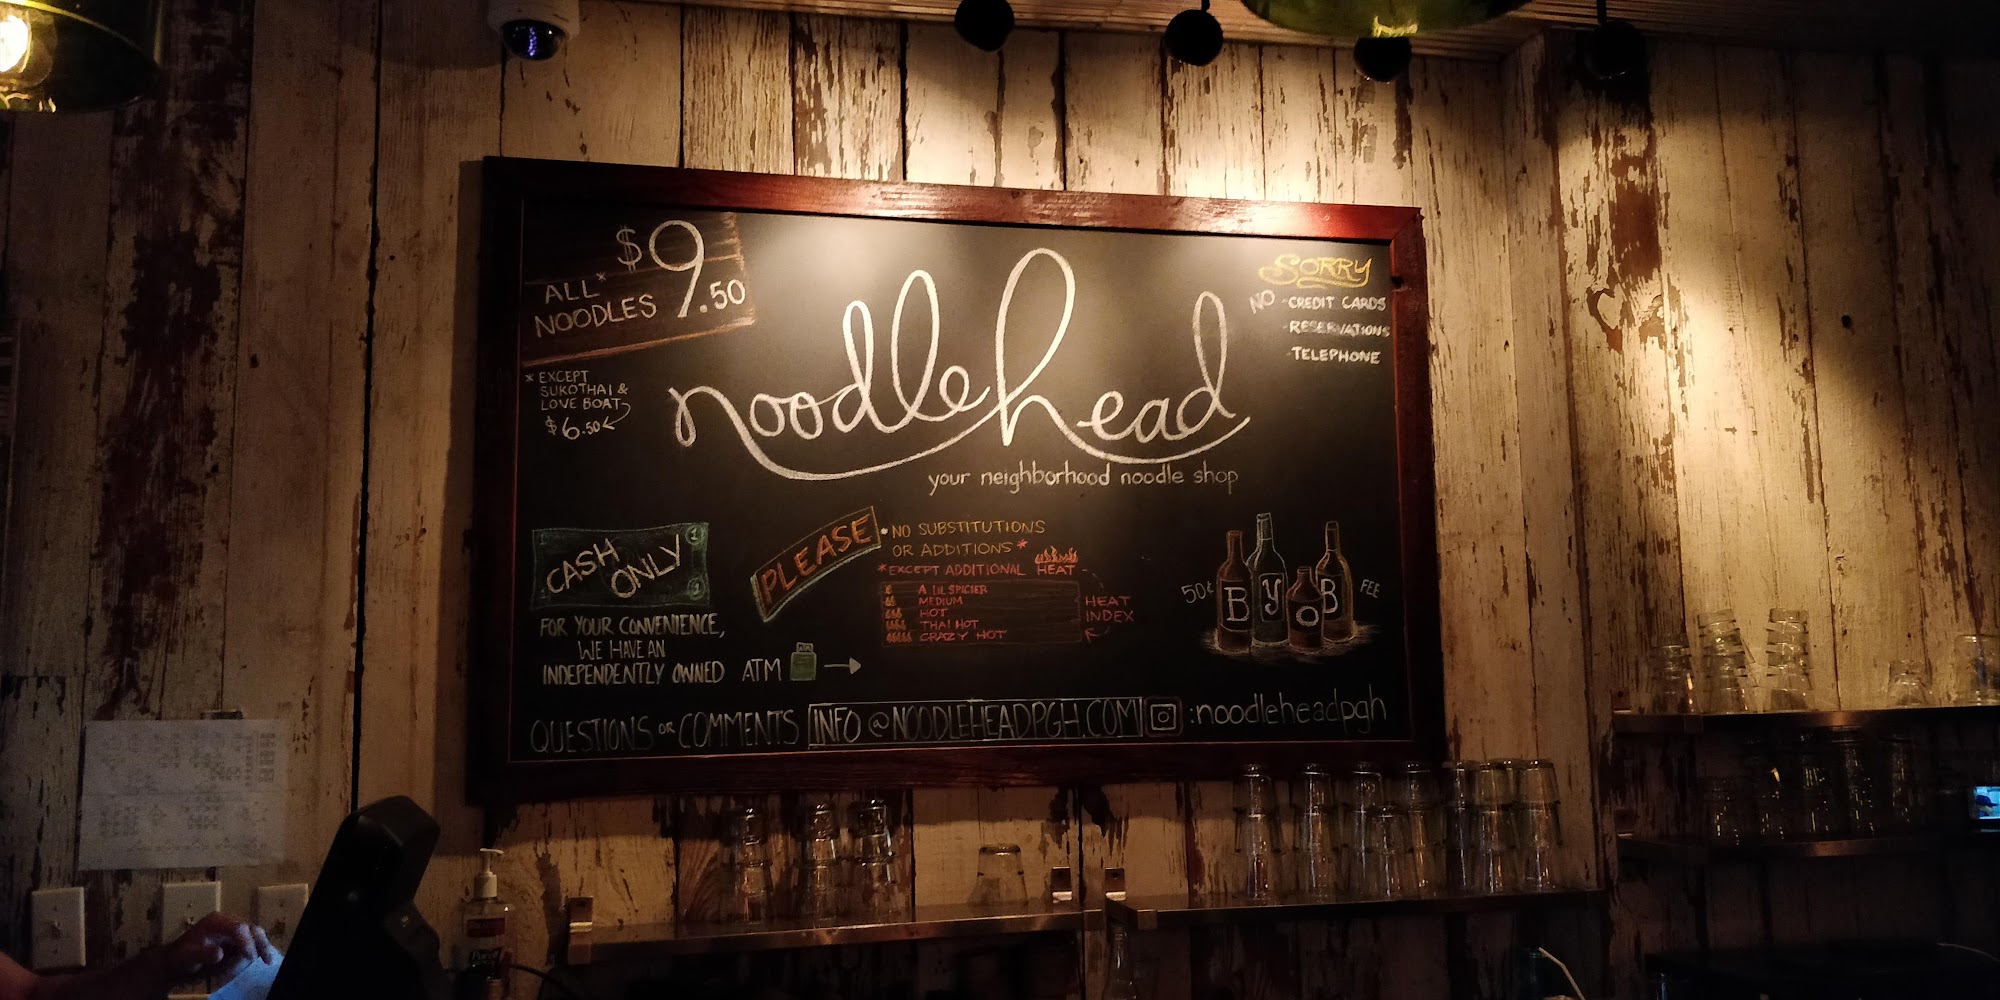 $9.50
ALL*
NOODLES
* EXCEPT
SUKOTHAI &
LOVE BOAT
$6.50
noodlehead
your neighborhood noodle shop
SORRY
NO - CREDIT CARDS
- RESERVATIONS
- TELEPHONE
CASH
ONLY
FOR YOUR CONVENIENCE,
WE HAVE AN
INDEPENDENTLY OWNED ATM
PLEASE
• NO SUBSTITUTIONS
OR ADDITIONS *
* EXCEPT ADDITIONAL HEAT
A LIL SPICIER
MEDIUM
HOT
THAI HOT
CRAZY HOT
HEAT
INDEX
50¢ BYOB FEE
QUESTIONS OR COMMENTS INFO@NOODLEHEADPGH.COM :noodleheadpgh